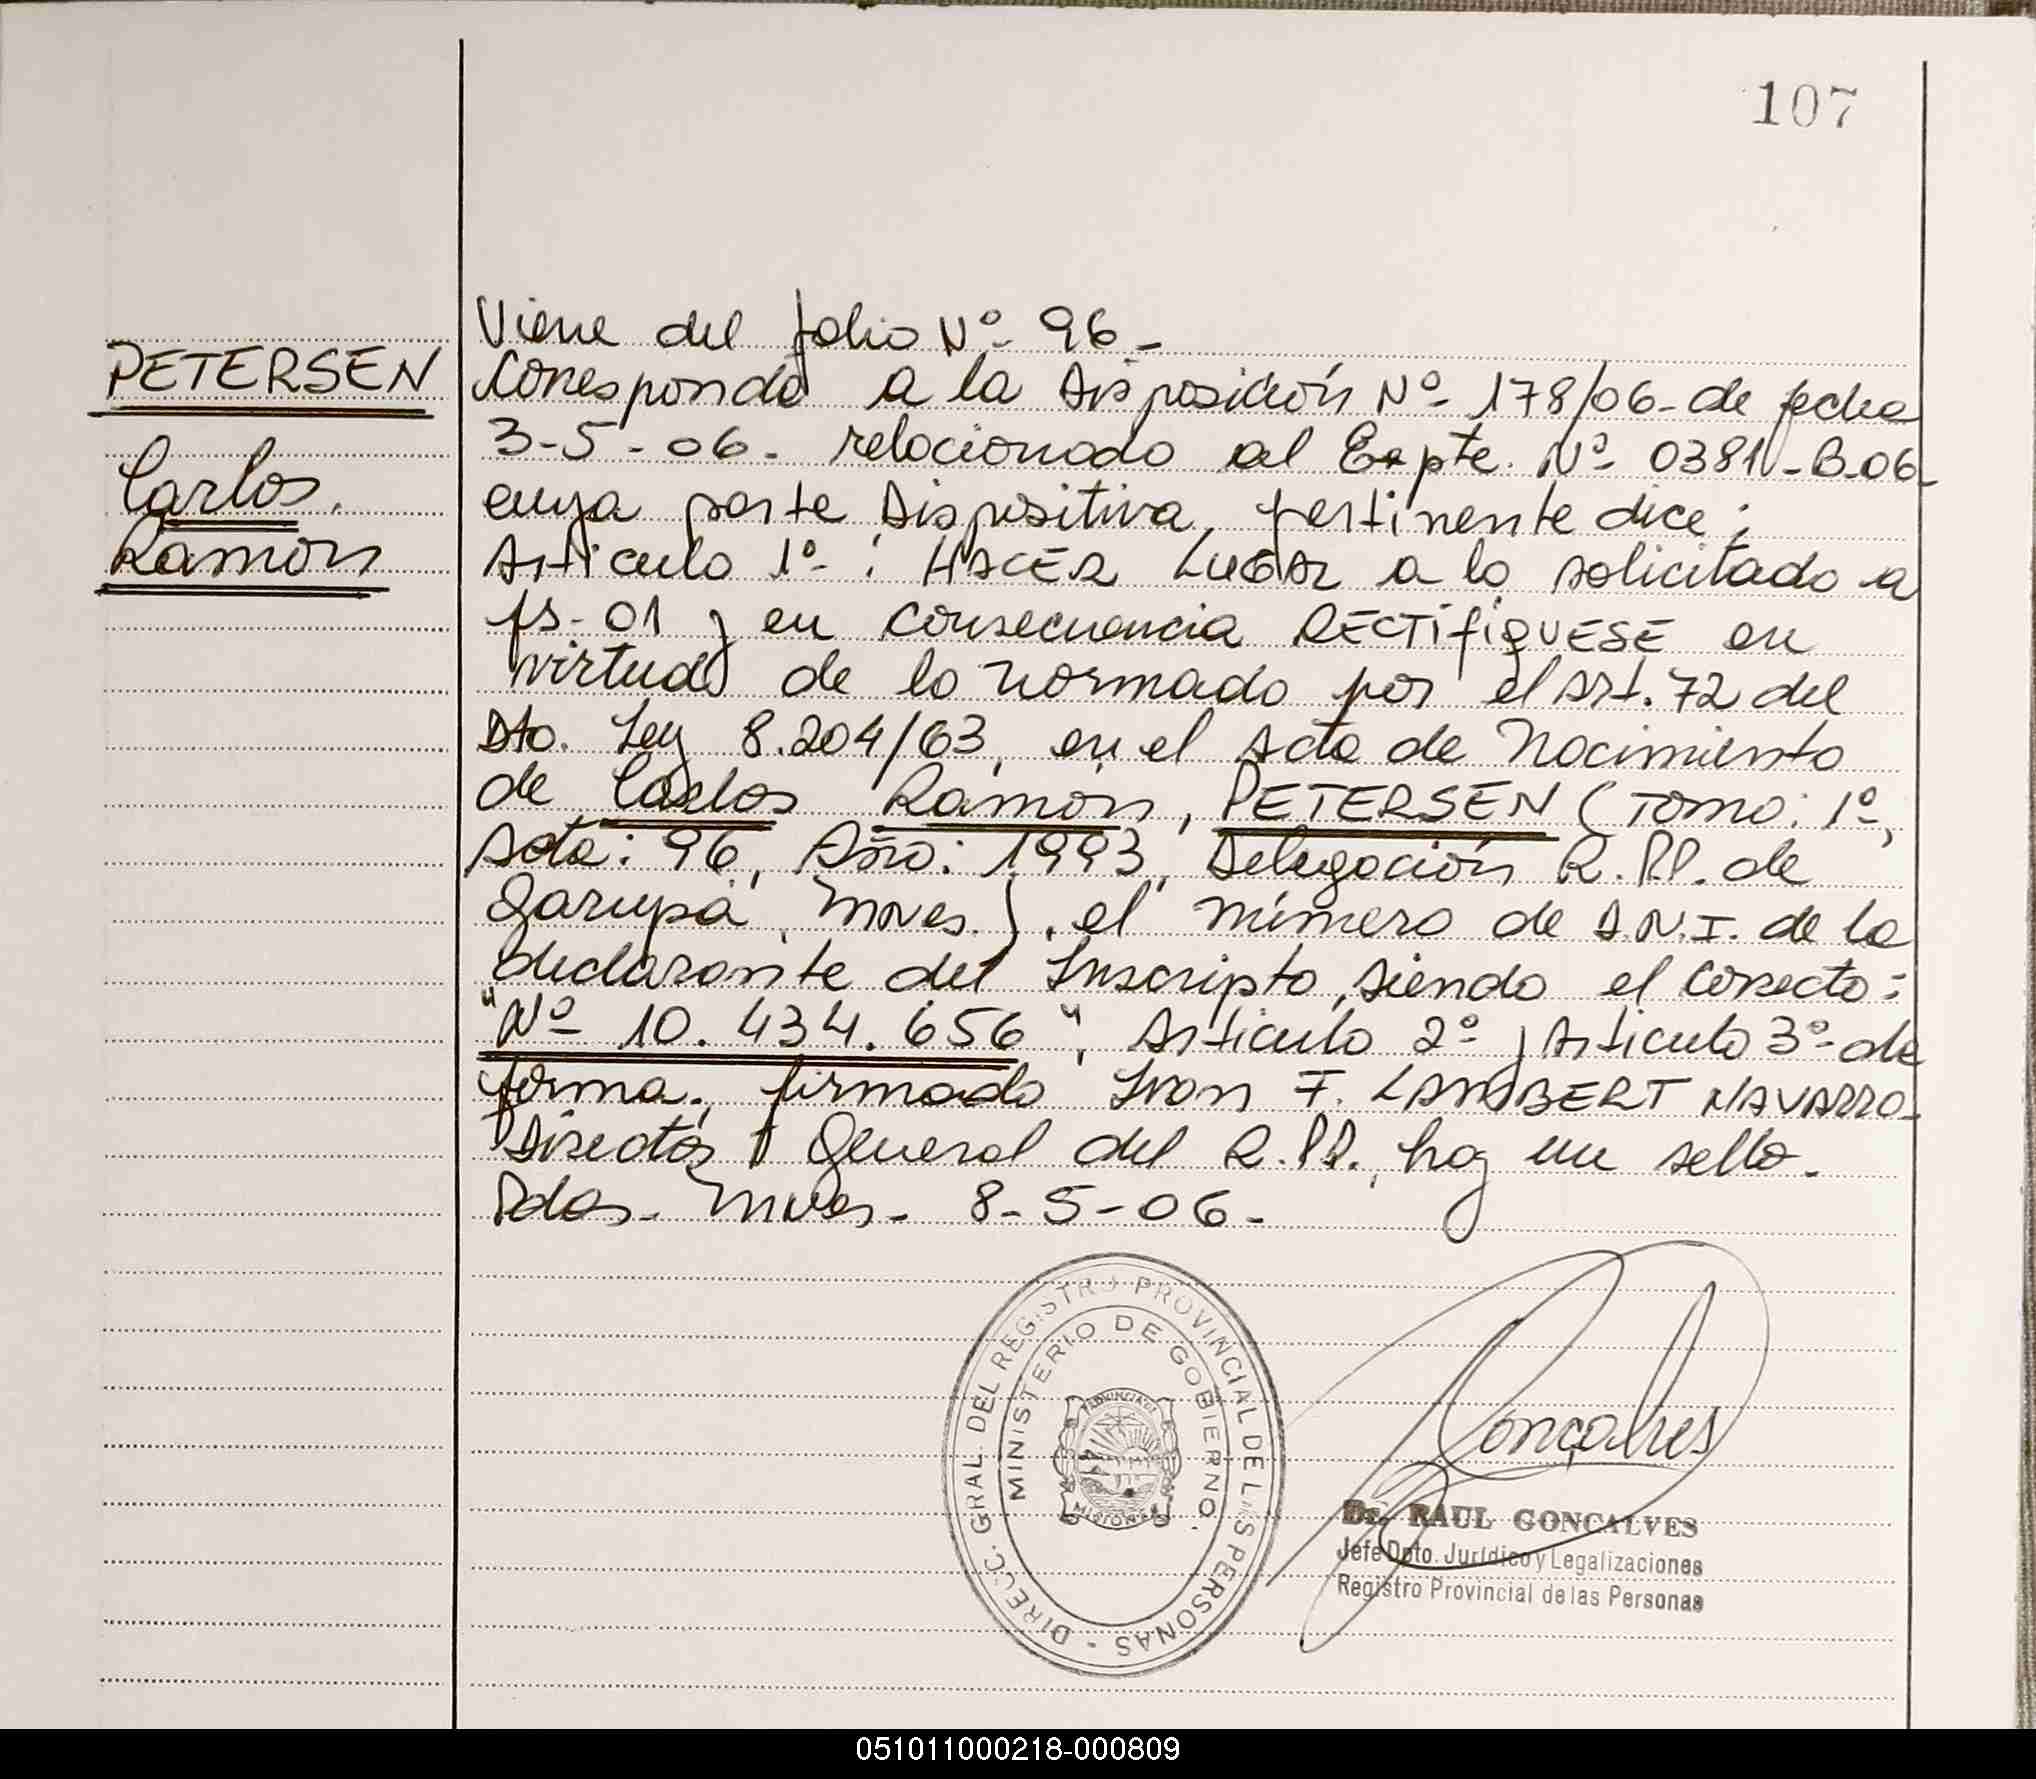 107
Viene del folio Nº 96-
PETERSEN
Carlos
Ramón
Corresponde a la Disposición Nº 178/06- de fecha
3-5-06- relacionado al Expte. Nº 0381-B-06-
cuya parte Dispositiva, pertinente dice:
Artículo 1º: HACER LUGAR a lo solicitado a
fs-01 y en consecuencia RECTIFIQUESE en
virtud de lo normado por el Art. 72 del
Dto. Ley 8.204/63, en el Acta de Nacimiento
de Carlos Ramón, PETERSEN (Tomo: 1º,
Acta: 96, Año: 1993, Delegación R.PP. de
Garupá, Mnes.), el número de D.N.I. de la
declarante del Inscripto, siendo el correcto:
"Nº 10.434.656", Artículo 2º y Artículo 3º de
forma, firmado Ivan F. LAMBERT NAVARRO-
Director General del R.PP., hay un sello-
Pdas- Mnes- 8-5-06-
DIRECC. GRAL. DEL REGISTRO PROVINCIAL DE LAS PERSONAS -
MINISTERIO DE GOBIERNO
PROVINCIA DE
MISIONES
Goncalves
Dr. RAUL GONCALVES
Jefe Dpto. Jurídico y Legalizaciones
Registro Provincial de las Personas
051011000218-000809